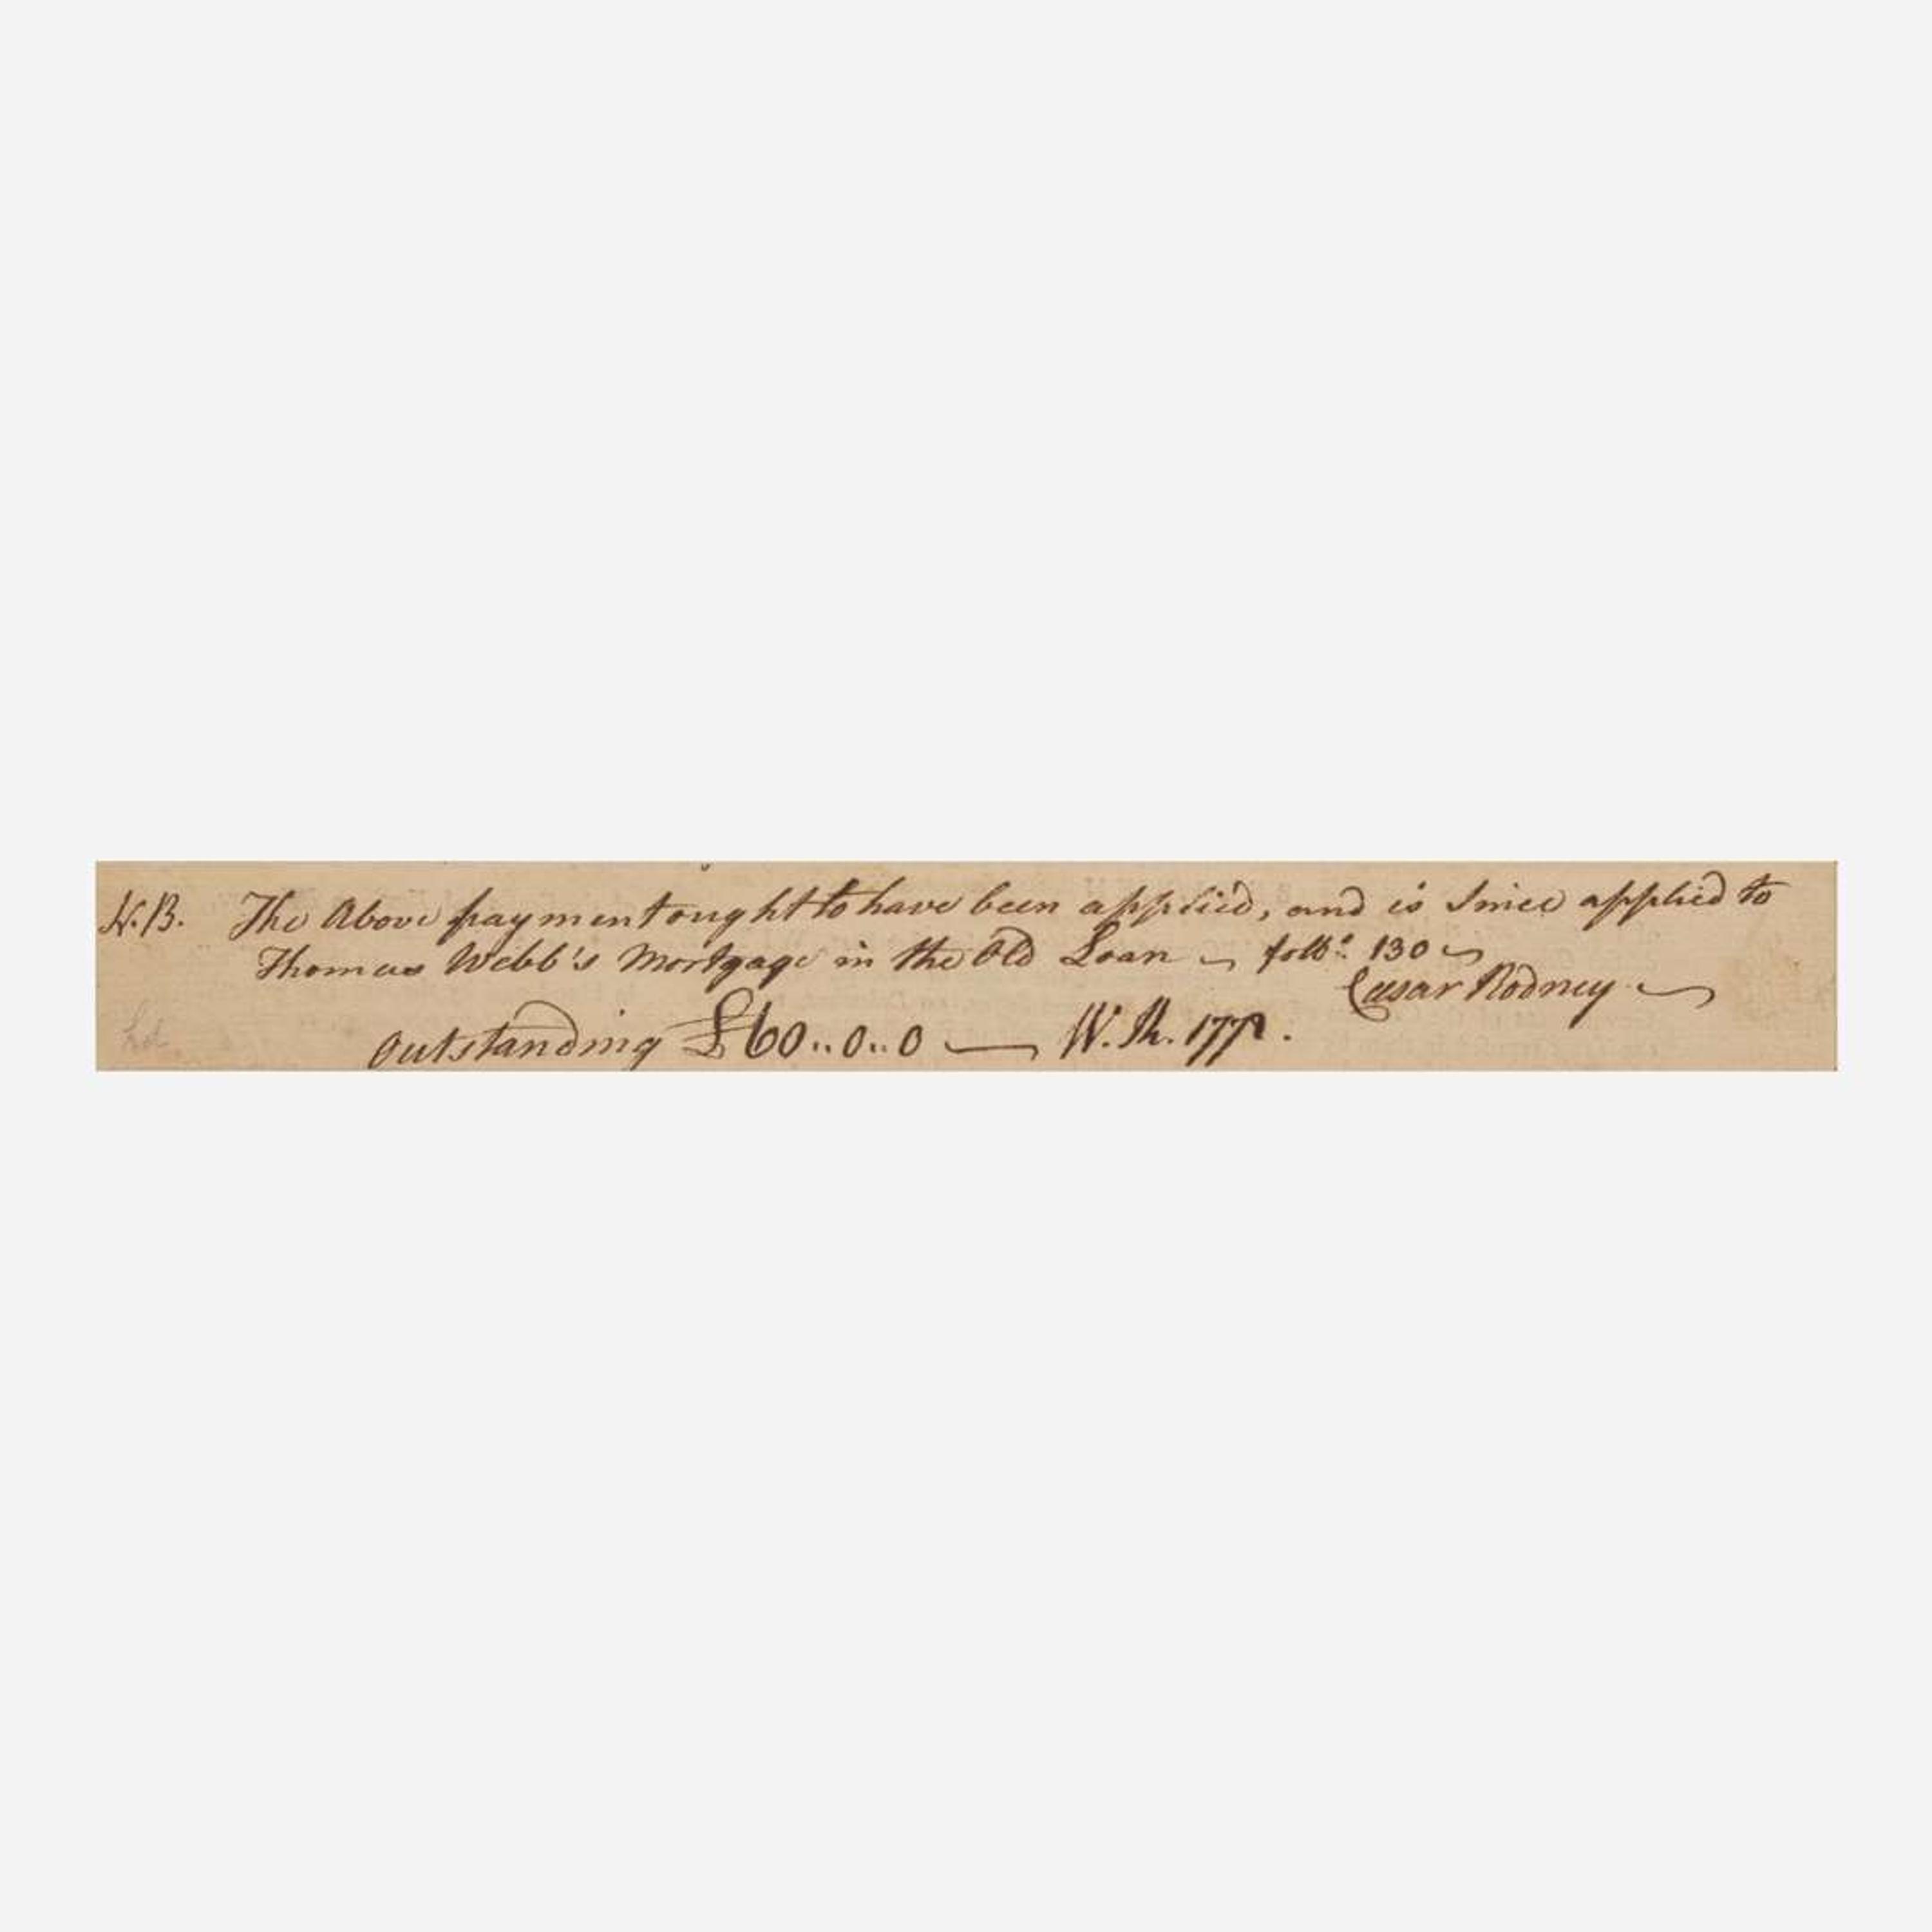 N.B. The Above payment ought to have been applied, and is Since applied to
Thomas Webb's Mortgage in the Old Loan ~ foll:° 130 ~
Cæsar Rodney
Outstanding £60..0..0 — W.